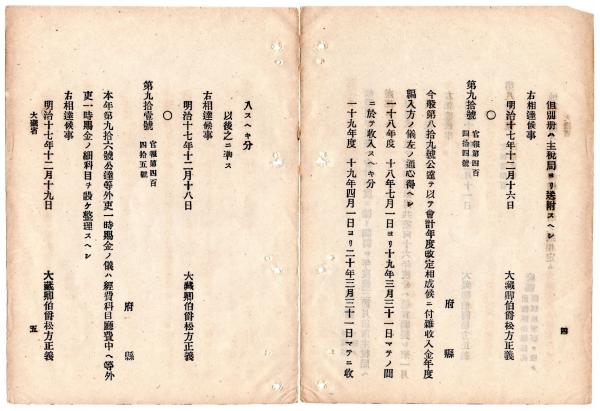 四
但別冊ハ主税局ヨリ送附スヘシ
右相達候事
明治十七年十二月十六日
大藏卿伯爵松方正義
〇
第九拾號 官報第四百四拾四號
府縣
今般第八十九號公達ヲ以テ會計年度改定相成候ニ付雜收入金年度
編入方ノ儀左ノ通心得ヘシ
一十八年度 十八年七月一日ヨリ十九年三月三十一日マテノ間
ニ於テ收入スヘキ分
一十九年度 十九年四月一日ヨリ二十年三月三十一日マテニ收
入スヘキ分
以後之ニ準ス
右相達候事
明治十七年十二月十八日
大藏卿伯爵松方正義
〇
第九拾壹號 官報第四百四拾五號
府縣
本年第九十六號公達等外吏一時賜金ノ儀ハ經費科目廳費中ヘ等外
吏一時賜金ノ細科目ヲ設ケ整理スヘシ
右相達候事
明治十七年十二月十九日
大藏卿伯爵松方正義
大藏省
五